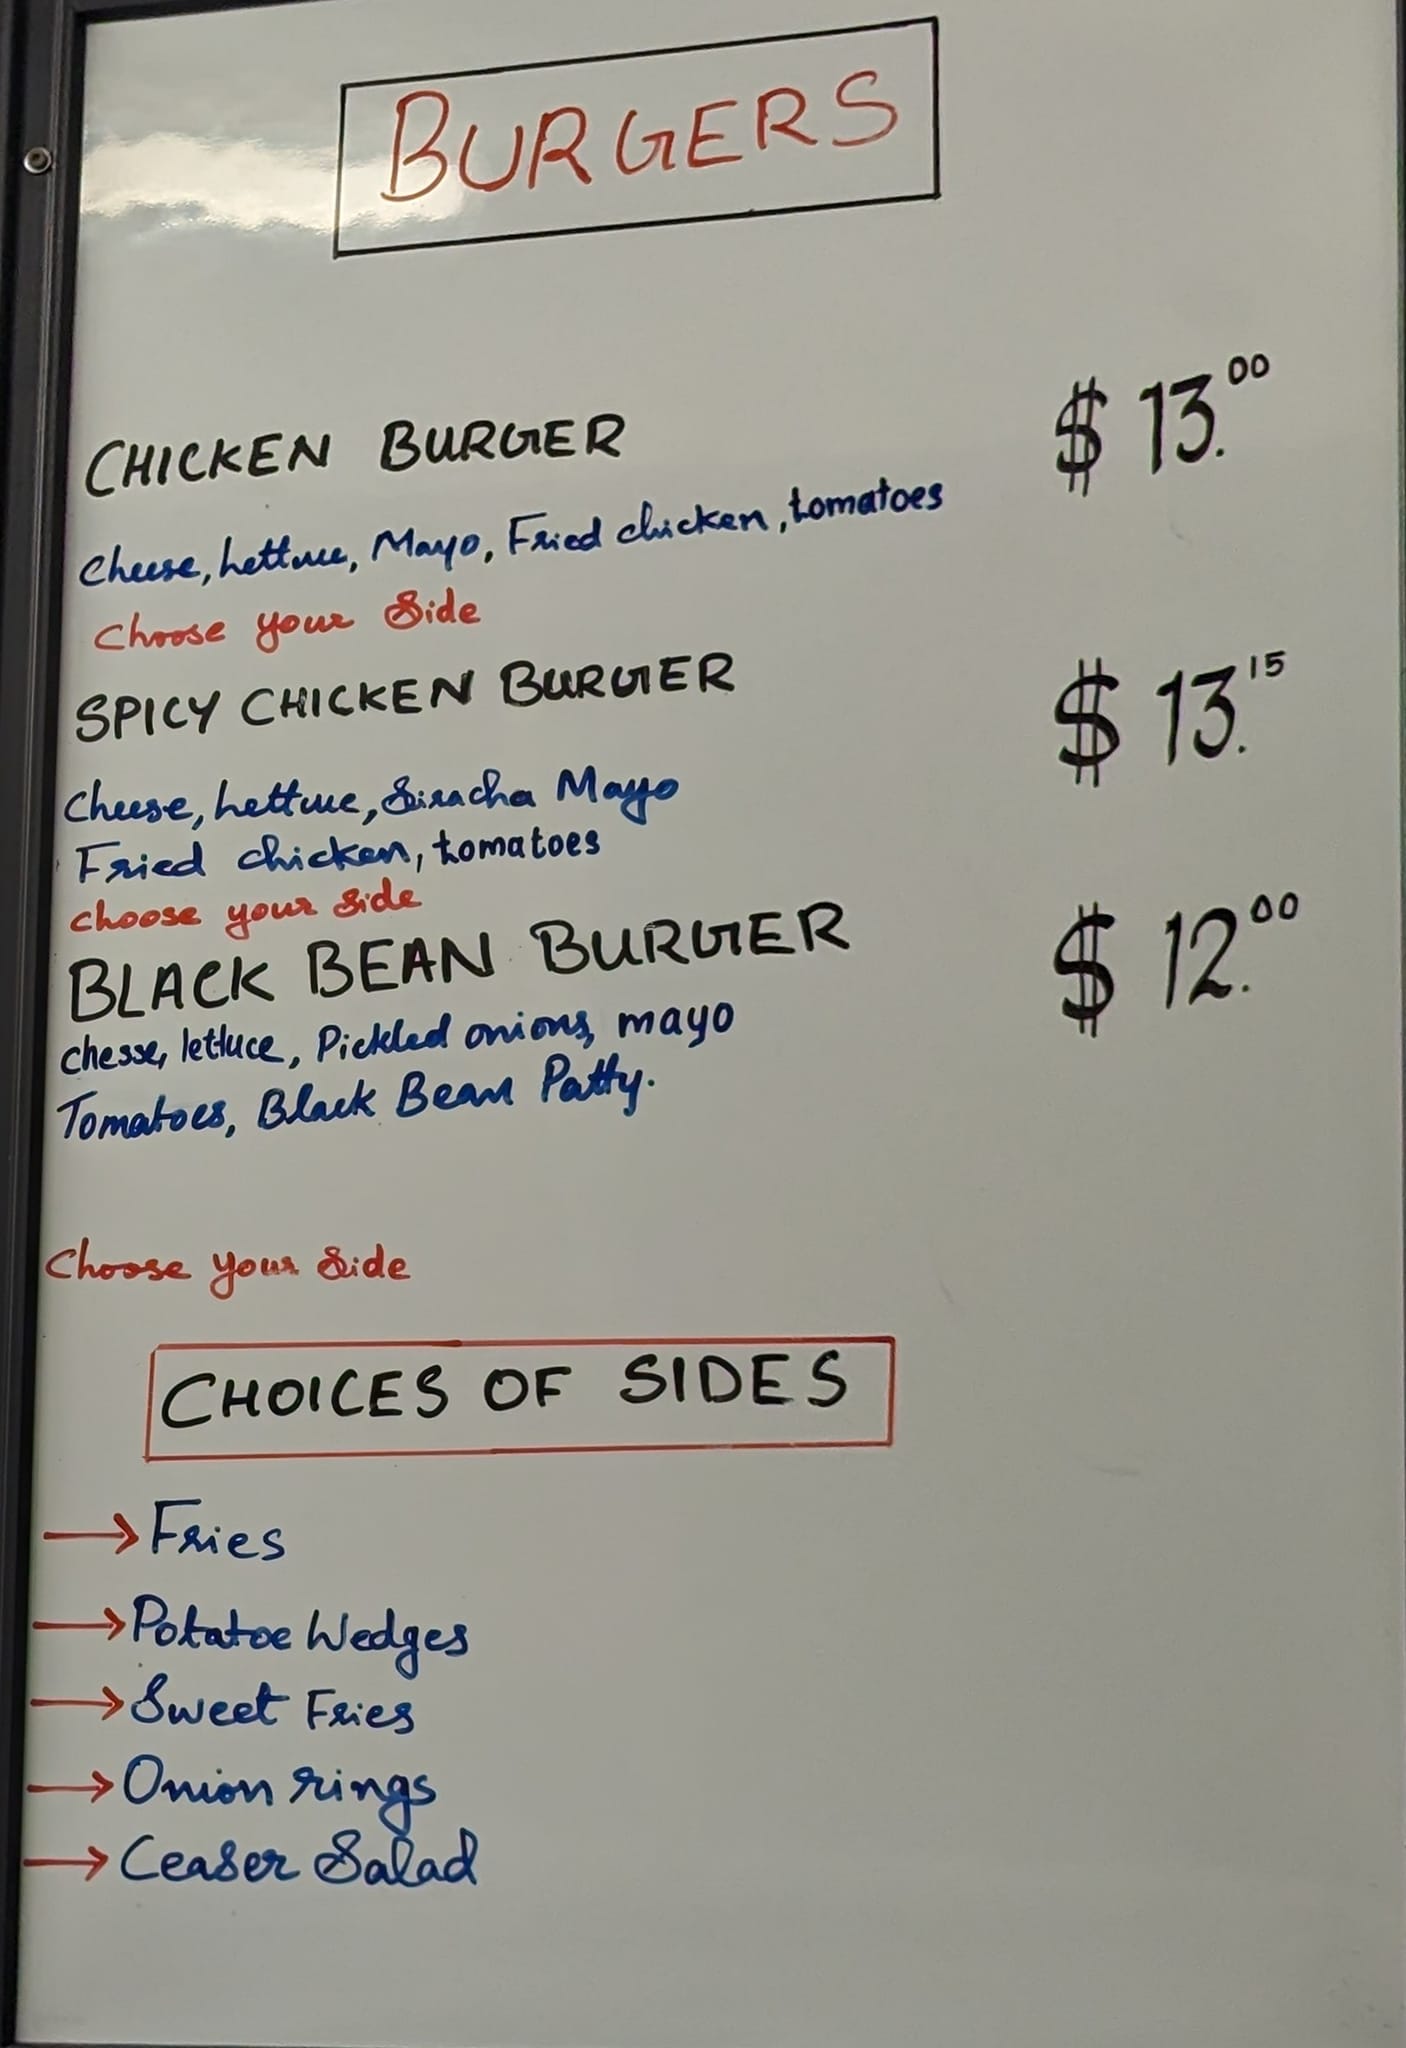 BURGERS
CHICKEN BURGER $ 13.00
Cheese, Lettuce, Mayo, Fried chicken, tomatoes
Choose your Side
SPICY CHICKEN BURGER $ 13.15
Cheese, Lettuce, Siracha Mayo
Fried chicken, tomatoes
choose your side
BLACK BEAN BURGER $ 12.00
chesse, lettuce, Pickled onions, mayo
Tomatoes, Black Bean Patty.
Choose your Side
CHOICES OF SIDES
→ Fries
→ Potatoe Wedges
→ Sweet Fries
→ Onion rings
→ Ceaser Salad